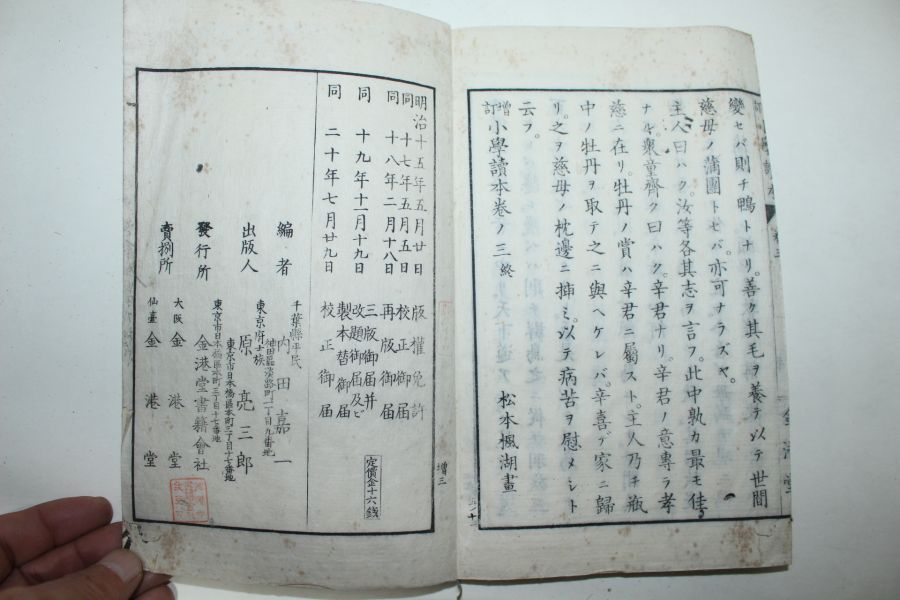 變セバ則チ鴨トナリ。善ク其毛ヲ養テ以テ世間
慈母ノ蒲團トセバ。亦可ナラズヤ。
主人曰ハク。汝等各其志ヲ言フ。此中孰カ最モ佳
ナル。衆童齊ク曰ハク。辛君ナリ。辛君ノ意專ラ孝
慈ニ在リ。牡丹ノ賞ハ辛君ニ屬スト。主人乃チ瓶
中ノ牡丹ヲ取テ之ニ與ヘケレバ。辛喜デ家ニ歸
リ。之ヲ慈母ノ枕邊ニ揷ミ。以テ病苦ヲ慰メシト
云フ。 松本楓湖畫
增訂小學讀本卷ノ三終
增三
明治十五年五月廿日 版權免許
同十七年五月五日 校正御届
同十八年二月十八日 再版御届
同十九年十一月十九日 三版御届并改題御届及ビ製本替御届
同二十年七月廿九日 校正御届
定價金十六錢
編者 千葉縣平民 內田嘉一
神田區淡路町二丁目九番地
出版人 東京府士族 原亮三郎
東京市日本橋區本町三丁目十七番地
發行所 金港堂書籍會社
東京市日本橋區本町三丁目十七番地
賣捌所 大阪 金港堂
仙臺 金港堂